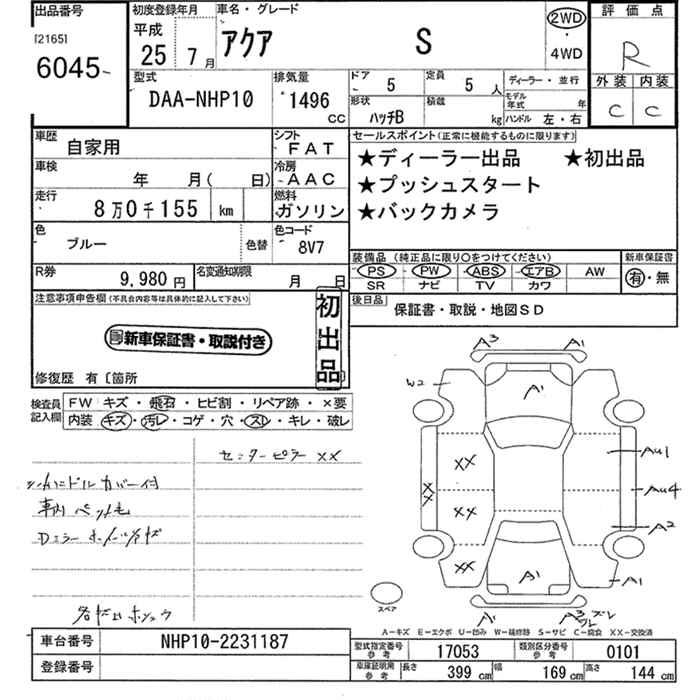 出品番号
[2165]
6045
初度登録年月
平成
25 7月
車名・グレード
アクア S
2WD
・
4WD
評価点
R
外装 内装
C C
型式
DAA-NHP10
排気量
1496
CC
ドア 5
定員 5 人
形状 ハッチB
積載 kg
ディーラー・並行
モデル年式 年
ハンドル 左・右
車歴 自家用
シフト FAT
車検 年 月( 日)
冷房 AAC
走行 8万0千155 km
燃料 ガソリン
色 ブルー 色替
色コード 8V7
R券 9,980 円
名変通知期限 月 日
セールスポイント(正常に機能するものに限ります)
★ディーラー出品 ★初出品
★プッシュスタート
★バックカメラ
装備品 (純正品に限り○をつけてください)
PS PW ABS エアB AW
SR ナビ TV カワ
新車保証書
有・無
後日品 保証書・取説・地図SD
注意事項申告欄(不具合内容等は具体的に記入して下さい)
新車保証書・取説付き
初出品
修復歴 有〔箇所
検査員記入欄
FW キズ・飛石・ヒビ割・リペア跡・×要
内装 キズ・汚レ・コゲ・穴・スレ・キレ・破レ
センターピラー XX
A3 A1
W2
A1
XX
XX
XX
XX
AU1
AU4
A2
A1
A1
A1
スペア
A-キズ E-エクボ U-凹み W-補修跡 S-サビ C-腐食 XX-交換済
車台番号 NHP10-2231187
登録番号
型式指定番号 参考 17053
類別区分番号 参考 0101
車庫証明用 参考 長さ 399 cm 幅 169 cm 高さ 144 cm